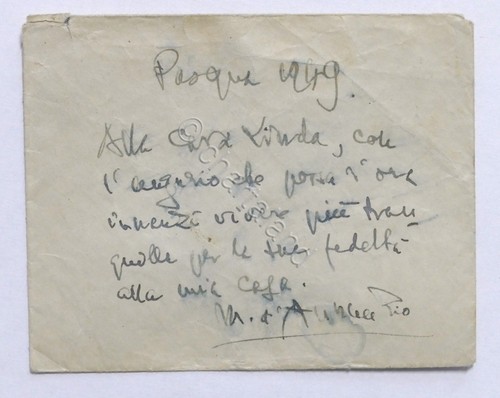 Pasqua 1949.
Alla Cara Linda, con
l'augurio che possa d'ora
innanzi vivere più tran
quilla per la sua fedeltà
alla mia casa.
M. d'Annunzio